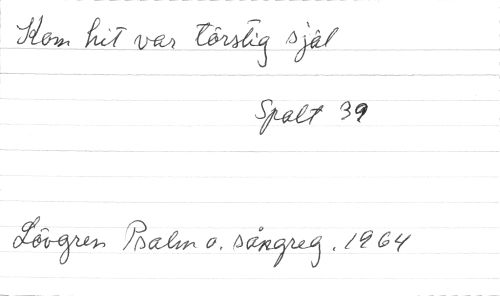 Kom hit var törstig själ
Spalt 39
Lövgren Psalm o. sångreg. 1964